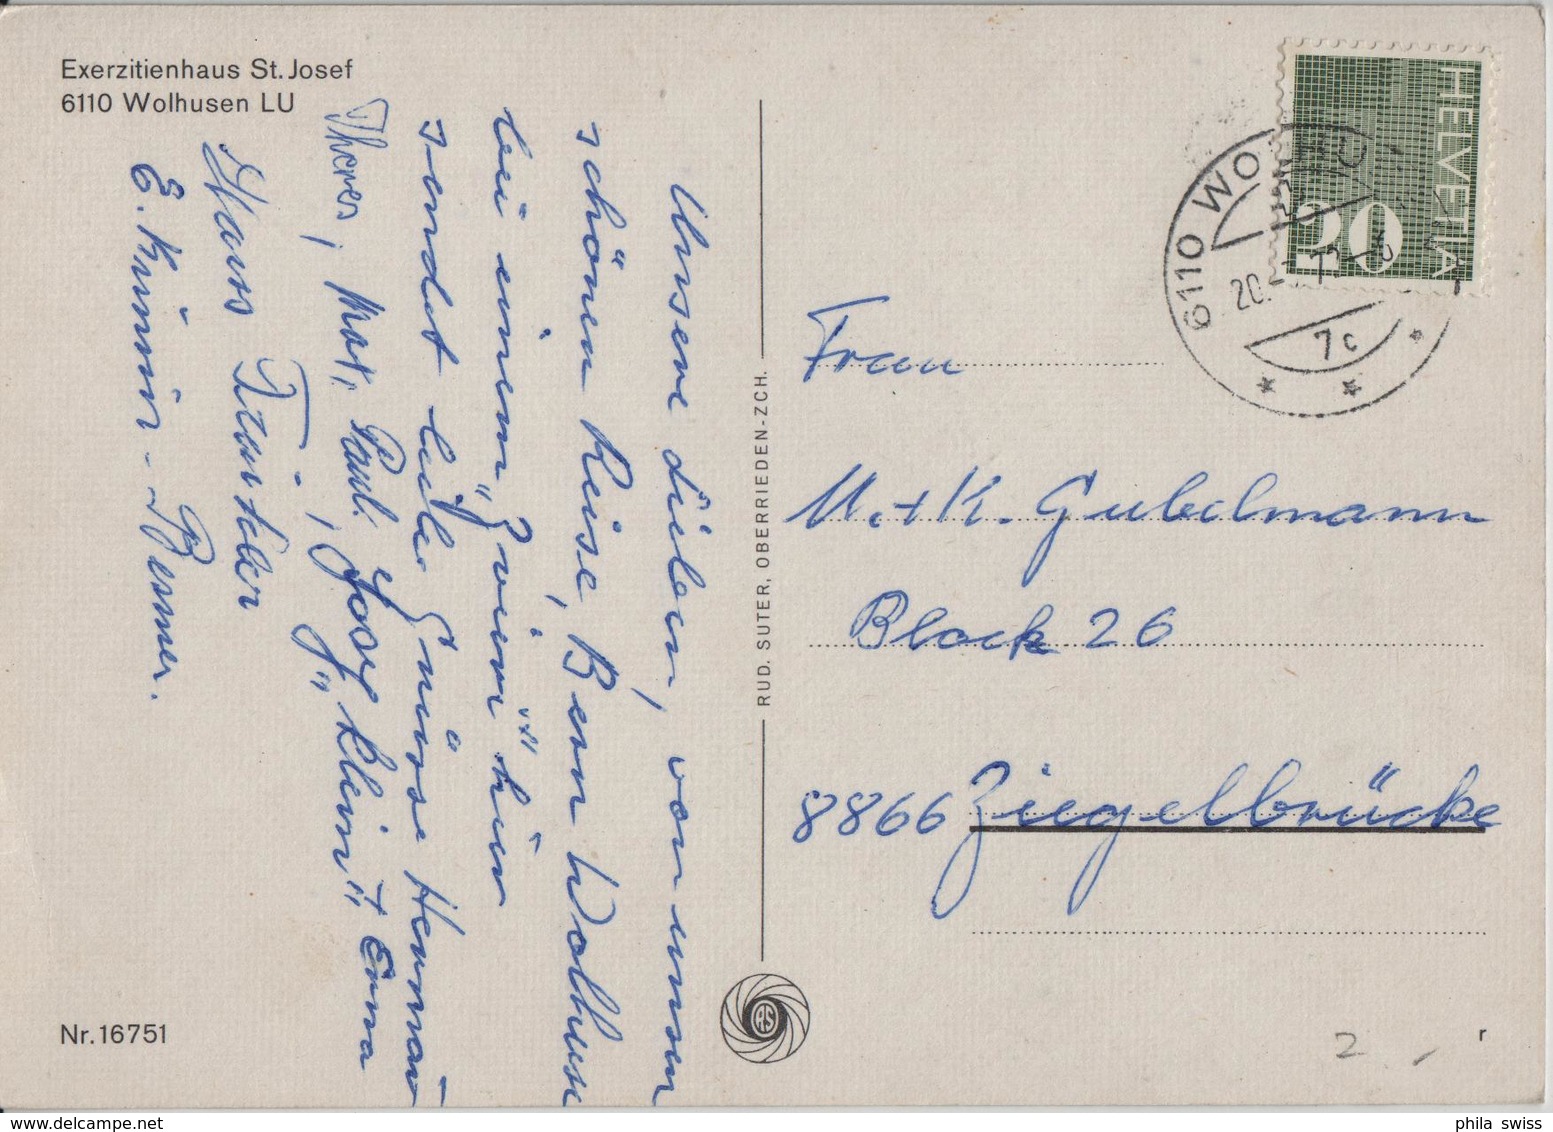 Exerzitienhaus St. Josef
6110 Wolhusen LU
Unsere Lieben, von unsern
schönen Reise, Bern Wolhusen
bei einem „Zvieri" hier
sendet liebe Grüsse Herman
Theres, Mark, Paul, Josy klein" + Erna
Hans
E. Kümin - Besmer.
Nr. 16751
RUD. SUTER, OBERRIEDEN-ZCH.
RS
HELVETIA
20
6110 WO
20.
7c
Frau
M. + K. Gubelmann
Block 26
8866 Ziegelbrücke
2
r
phila swiss